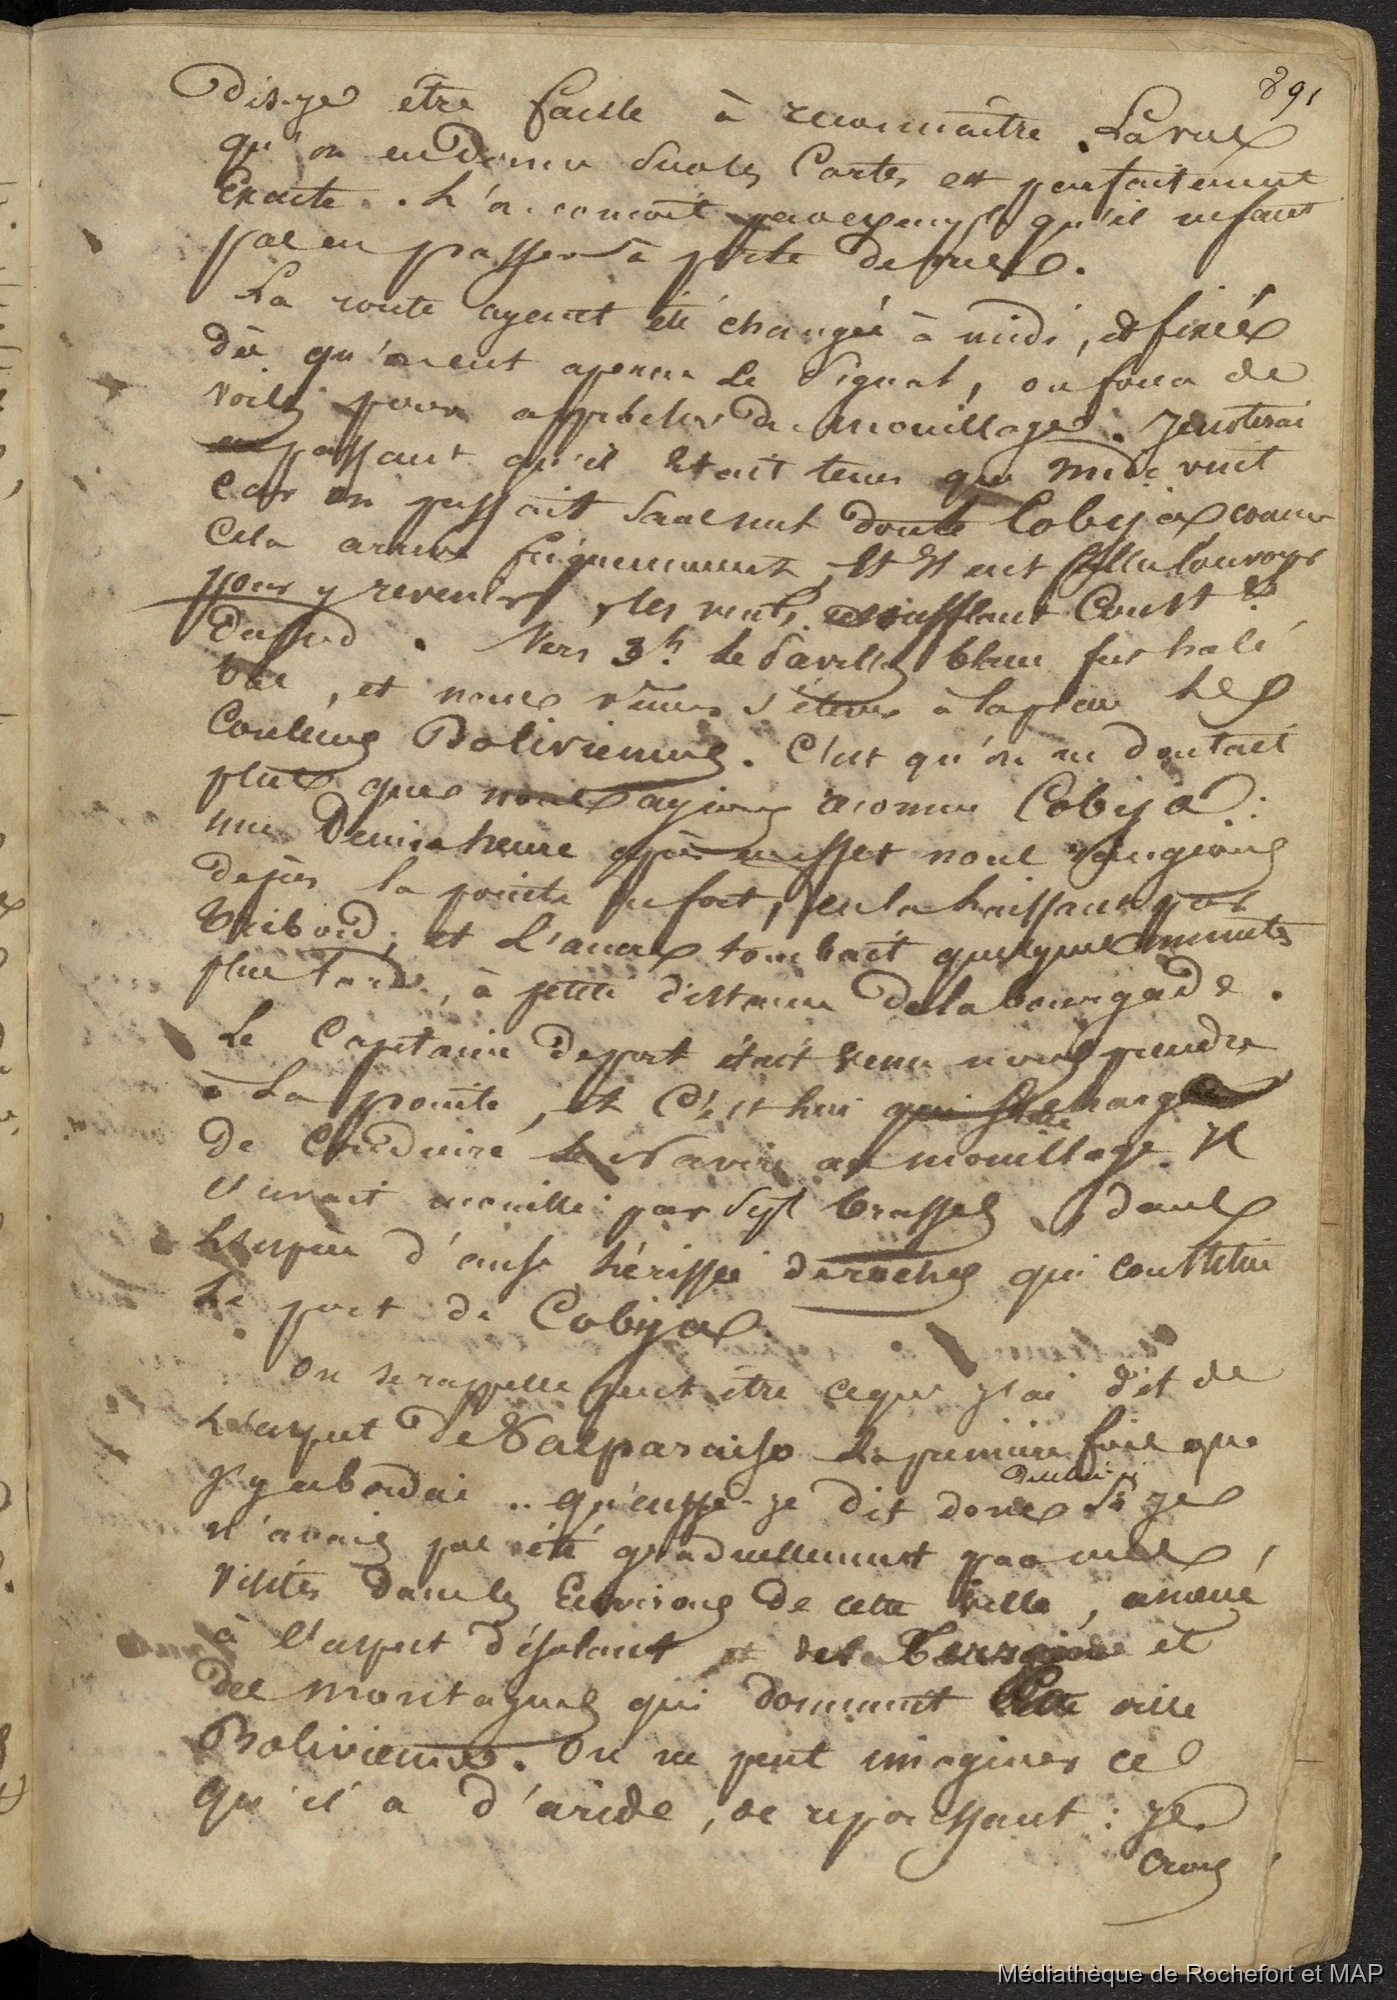 891
Dis-je être facile à reconnaître. La vue
qu'on en donne sur les Cartes est parfaitement
Exacte. . L'on conçoit qu'il ne faut
pas en passer à perte de vue.
La route ayant été changée à midi, et fixée
dès qu'on eut aperçu le Signal, on força de
voiles pour approcher du mouillage. Je noterai
en passant qu'il était tems que midi vint
car on passait sans nul doute Cobija comme
Cela arrive fréquemment, et il eut fallu louvoyer
pour y revenir, les vents soufflant Const.t
du sud. Vers 3h. le Pavillon blanc fut halé
bas, et nous vimes s'élever à la place les
Couleurs Boliviennes. C'est qu'on ne doutait
plus que nous ayions reconnu Cobija :
une Demie heure après en effet nous rangions
dejà la pointe du fort, en la laissant par
tribord, et L'ancre tombait quelques minutes
plus tard, à petite distance de la bourgade.
Le Capitaine de port était venu nous prendre
à La pointe, et C'est lui qui
De Conduire le Navire au mouillage. Il
était mouillé par Sept brasses, dans
L'espèce d'anse hérissée de roches qui constitue
Le port de Cobija.
On se rappelle peut être ce que j'ai dit de
L'aspect de Valparaiso la première fois que
J'y abordai .. qu'eussé-je dit donc
Si je
n'avais pas été graduellement par mes
visites dans les Environs de cette ville, amené
à l'aspect désolant et de la et
des montagnes qui dominent Cette ville
Bolivienne. On ne peut imaginer ce
qu'il a d'aride, de repoussant : Je
crois
Médiathèque de Rochefort et MAP